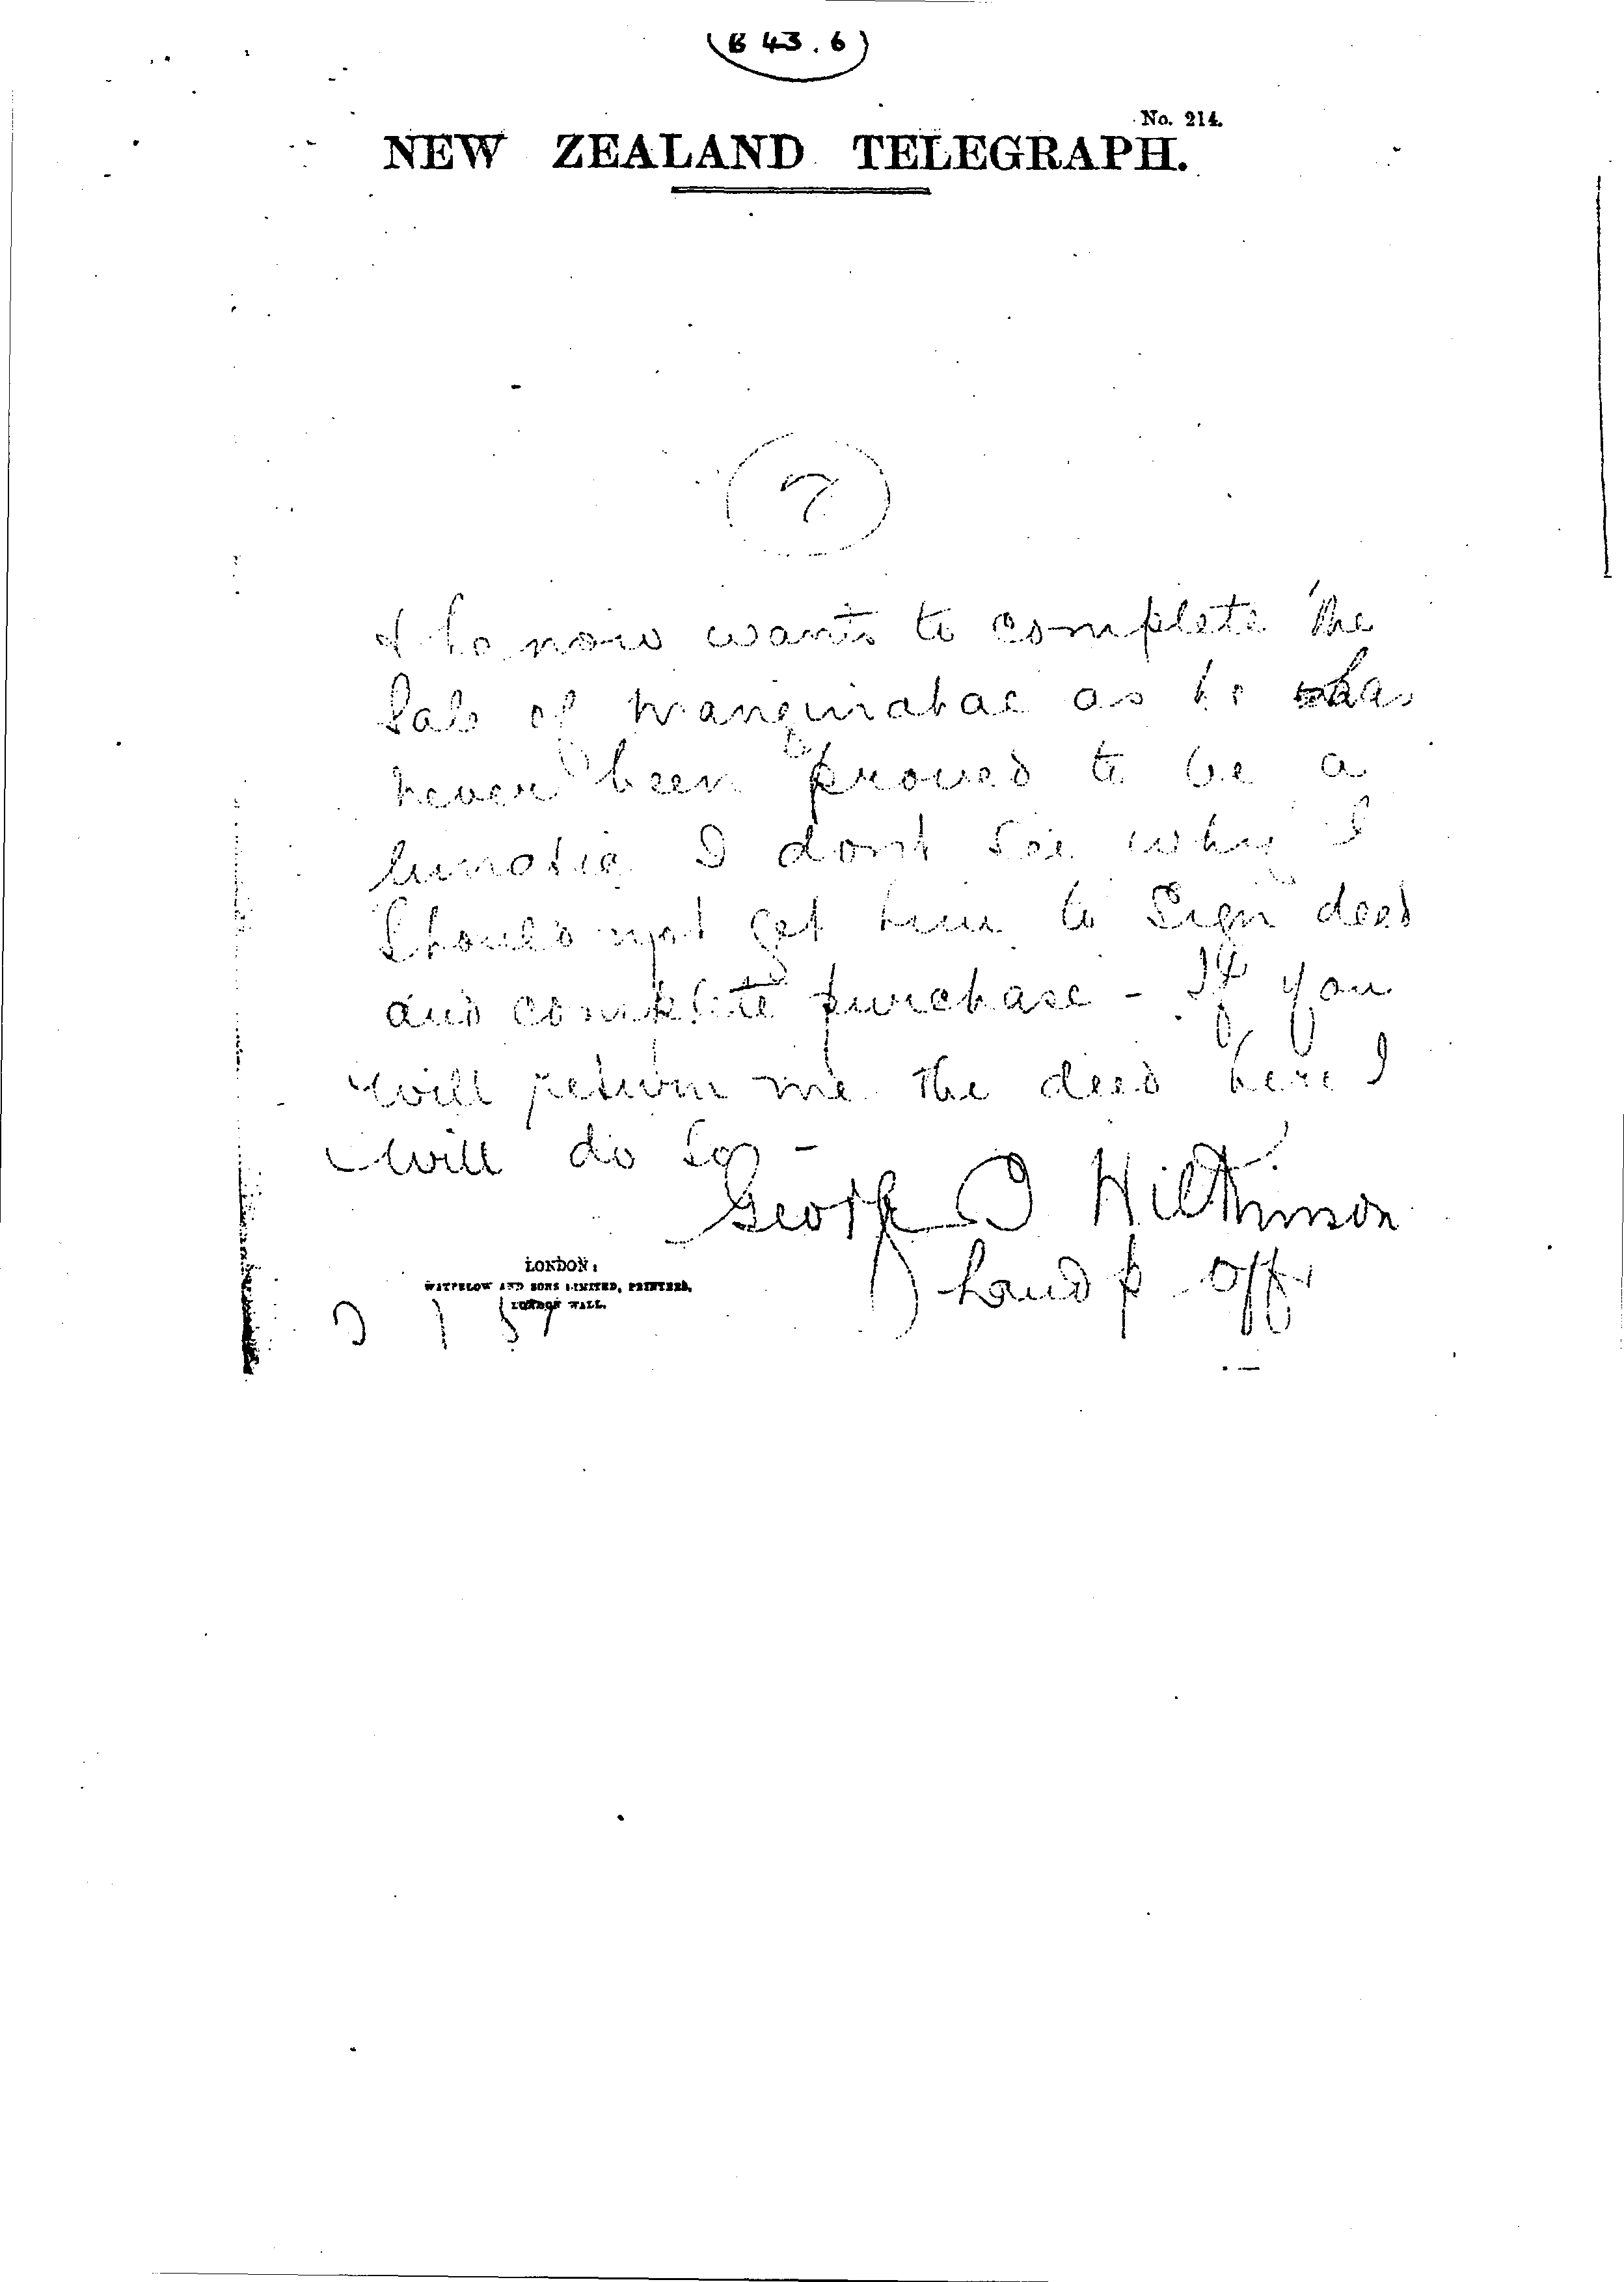 (B 43.6)
No. 214.
NEW ZEALAND TELEGRAPH.
7
& he now wants to complete the
Sale of as he has
never been proved to be a
lunatic I dont see why I
Should not get him to Sign deed
and complete purchase - If you
will return me the deed here I
will do so -
George T Wilkinson
Land p Offr
LONDON:
WATERLOW AND SONS LIMITED, PRINTERS,
LONDON WALL.